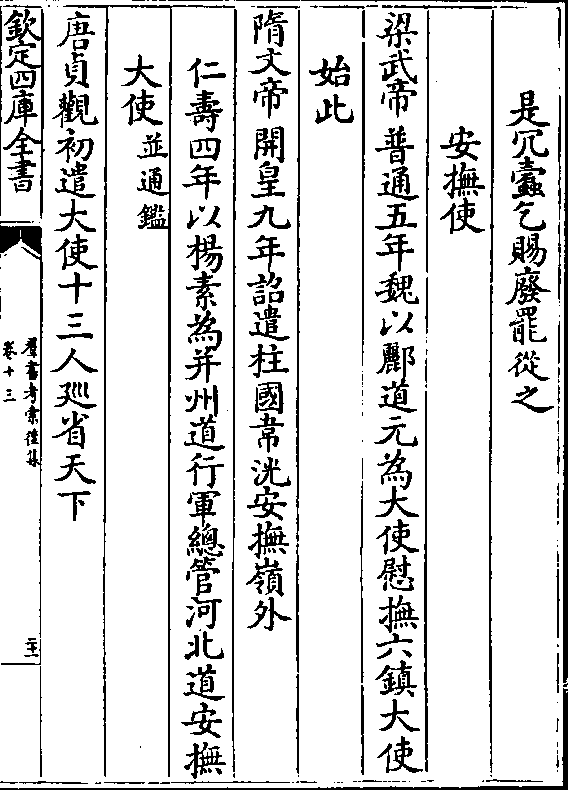 是冗蠹乞賜廢罷從之
安撫使
梁武帝普通五年魏以酈道元為大使慰撫六鎮大使
始此
隋文帝開皇九年詔遣柱國韋洸安撫嶺外
仁壽四年以楊素為并州道行軍總管河北道安撫
大使並通鑑
唐貞觀初遣大使十三人廵省天下
欽定四庫全書
羣書考索後集
卷十三